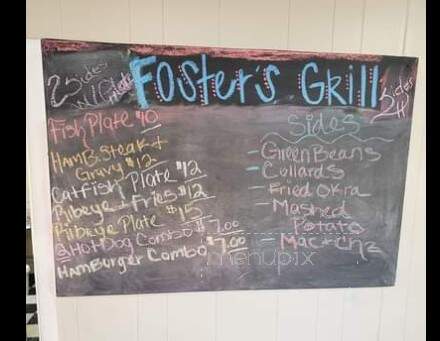 Foster's Grill
2 Sides
W/ Plate
Sides
Fish Plate $10
HamB. Steak +
Gravy $12
Catfish Plate $12
Ribeye + Fries $12
Ribeye Plate $15
2 Hot Dog Combo $7.00
Hamburger Combo $7.00
Sides
- Green Beans
- Collards
- Fried Okra
- Mashed
Potato
- Mac + Chz
menupix